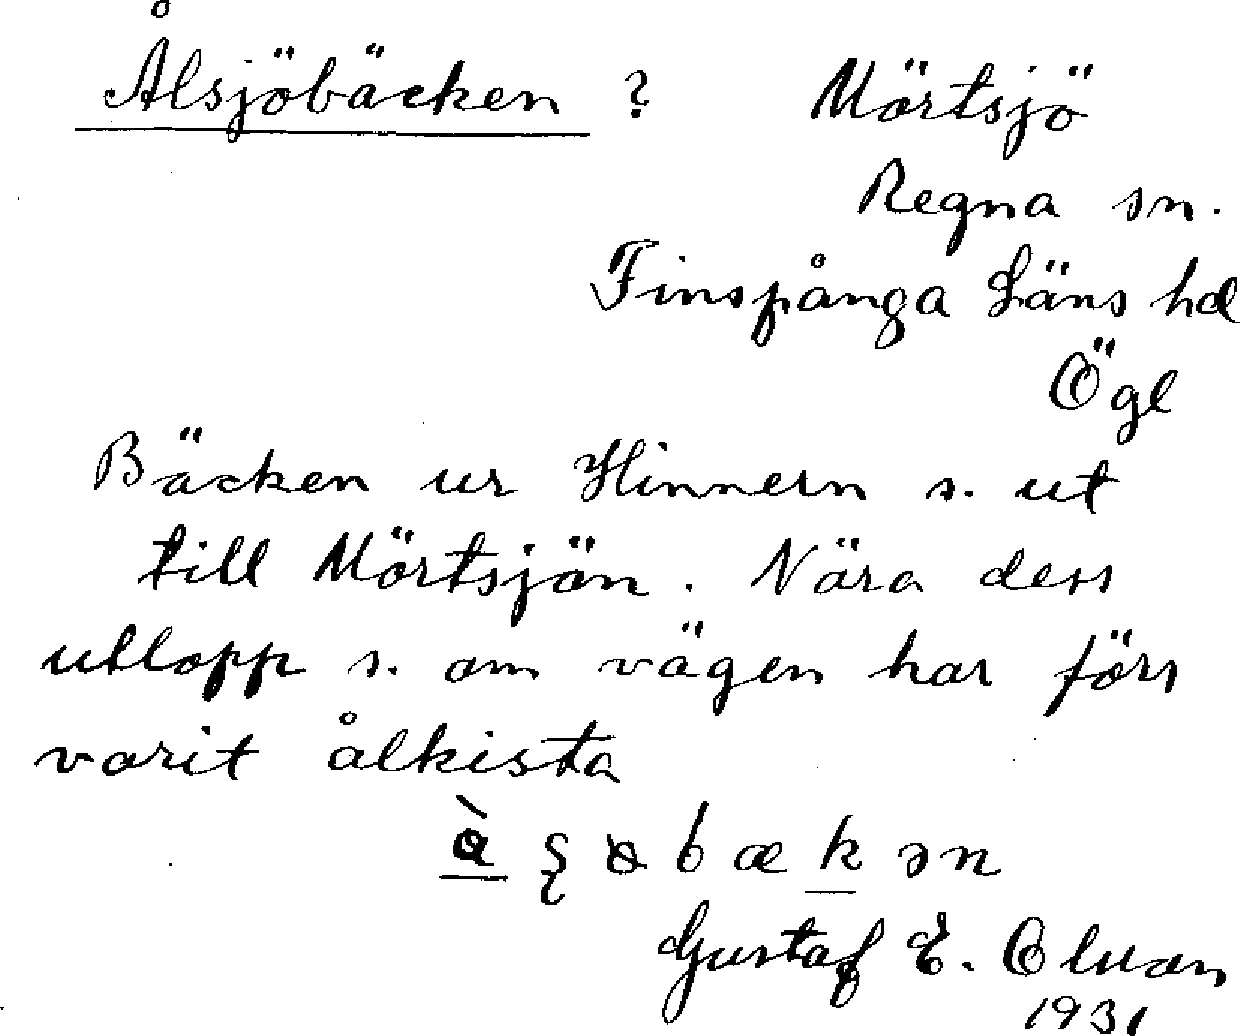 Ålsjöbäcken ? Mörtsjö
Regna sn.
Finspånga Läns hd
Ögl
Bäcken ur Hinnern s. ut
till Mörtsjön. Nära dess
utlopp s. om vägen har förs
varit ålkista
Gustaf E.
1931